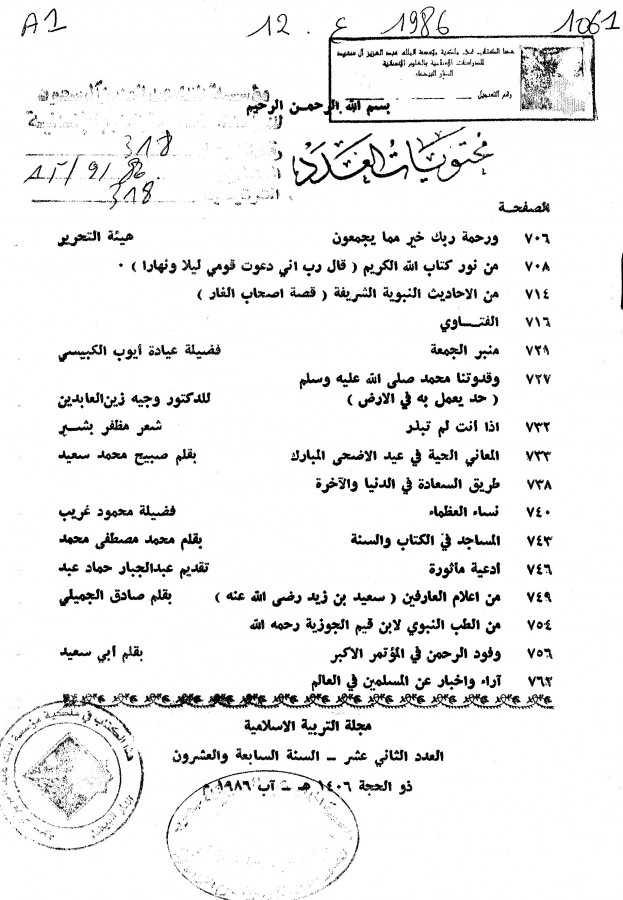 A1 12 . ع 1986 1061
هذا الكتاب في ملكية مؤسسة الملك عبد العزيز آل سعود
للدراسات الاسلامية والعلوم الانسانية
الدار البيضاء
رقم التسجيل
بسم الله الرحمن الرحيم
318
318
محتويات العدد
الصفحة
٧٠٦ ورحمة ربك خير مما يجمعون هيئة التحرير
٧٠٨ من نور كتاب الله الكريم ( قال رب اني دعوت قومي ليلا ونهارا ) ٠
٧١٤ من الاحاديث النبوية الشريفة ( قصة اصحاب الغار )
٧١٦ الفتـــاوي
٧٢٩ منبر الجمعة فضيلة عيادة أيوب الكبيسي
٧٢٧ وقدوتنا محمد صلى الله عليه وسلم
( حد يعمل به في الارض ) للدكتور وجيه زين‌العابدين
٧٣٢ اذا أنت لم تبذر شعر مظفر بشـــير
٧٣٣ المعاني الحية في عيد الاضحى المبارك بقلم صبيح محمد سعيد
٧٣٨ طريق السعادة في الدنيا والآخرة
٧٤٠ نساء العظماء فضيلة محمود غريب
٧٤٣ المساجد في الكتاب والسنة بقلم محمد مصطفى محمد
٧٤٦ أدعية مأثورة تقديم عبدالجبار حماد عبد
٧٤٩ من اعلام العارفين ( سعيد بن زيد رضى الله عنه ) بقلم صادق الجميلي
٧٥٤ من الطب النبوي لابن قيم الجوزية رحمه الله
٧٥٦ وفود الرحمن في المؤتمر الاكبر بقلم أبي سعيد
٧٦٢ آراء واخبار عن المسلمين في العالم
مجلة التربية الاسلامية
العدد الثاني عشر – السنة السابعة والعشرون
ذو الحجة ١٤٠٦ هـ – آب ١٩٨٦ م
هذا الكتاب في ملكية مؤسسة